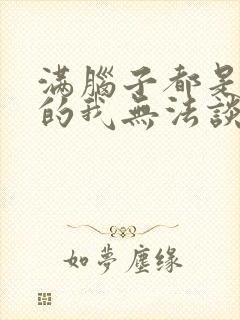 滿腦子都是
的我無法談
如夢塵緣